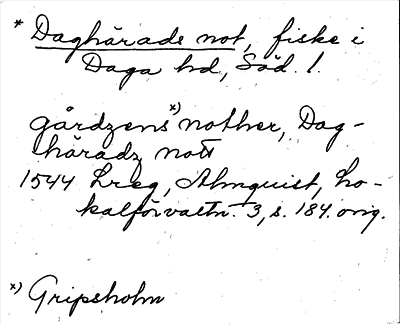 * Daghärads not, fiske i
Daga hd, Söd. l.
gårdzens x) nother, Dag-
häradz nott
1544 Lreg, Almquist, Lo-
kalförvaltn. 3, s. 184. orig.
x) Gripsholm